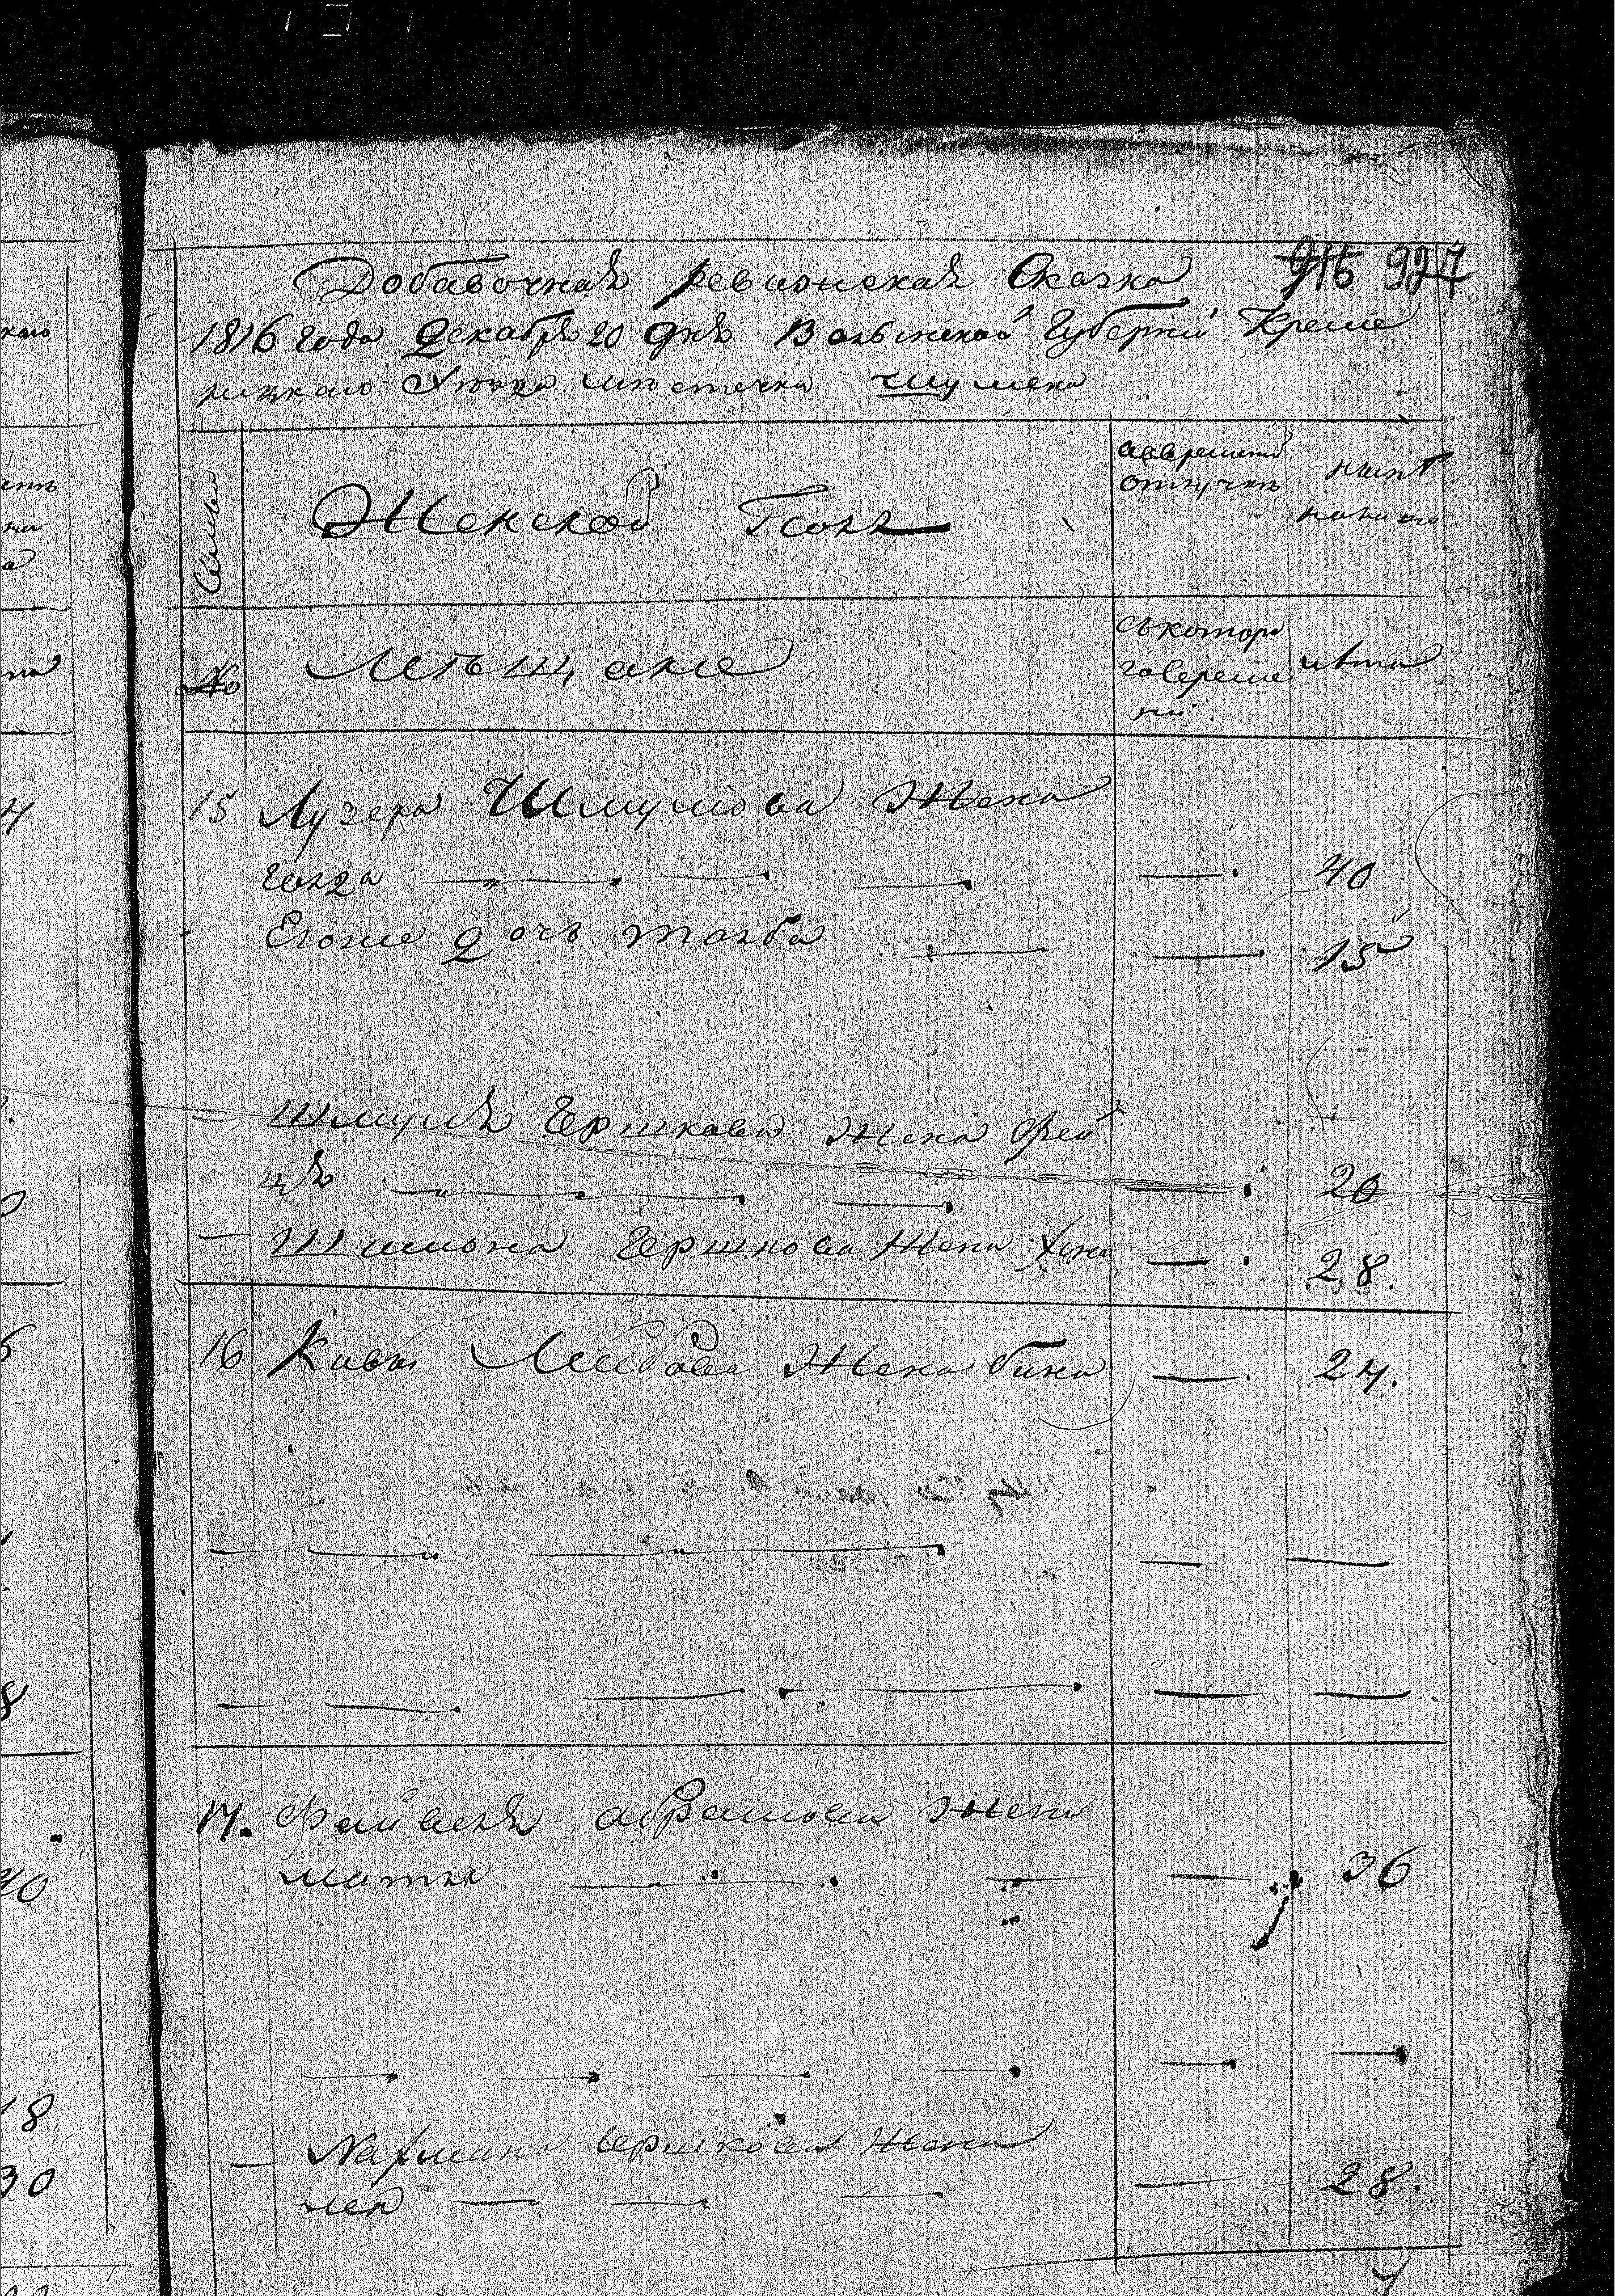 Добавочная ревизская Сказка 916 927
1816 года Декабря 20 дня Волынской Губернии Креме
нецкаго Уезда местечка Шумска
Семьи
Женской Пол
вовременной
отлучке
ныне
налицо
№
Мещане
Съ котора
го времени
лета
15 Лузера Шмулиова Жена
Голда 40
Егоже дочь Товба 15
Шмуля Гершкова жена Фей
ця 20
Шимона Гершкова Жена Хина 28.
16 Кивы Лейбова Жена бина 24.
17. Файвеля Абрамова жена
Матля 36
Нахмана Гершкова Жена
Лея 28.